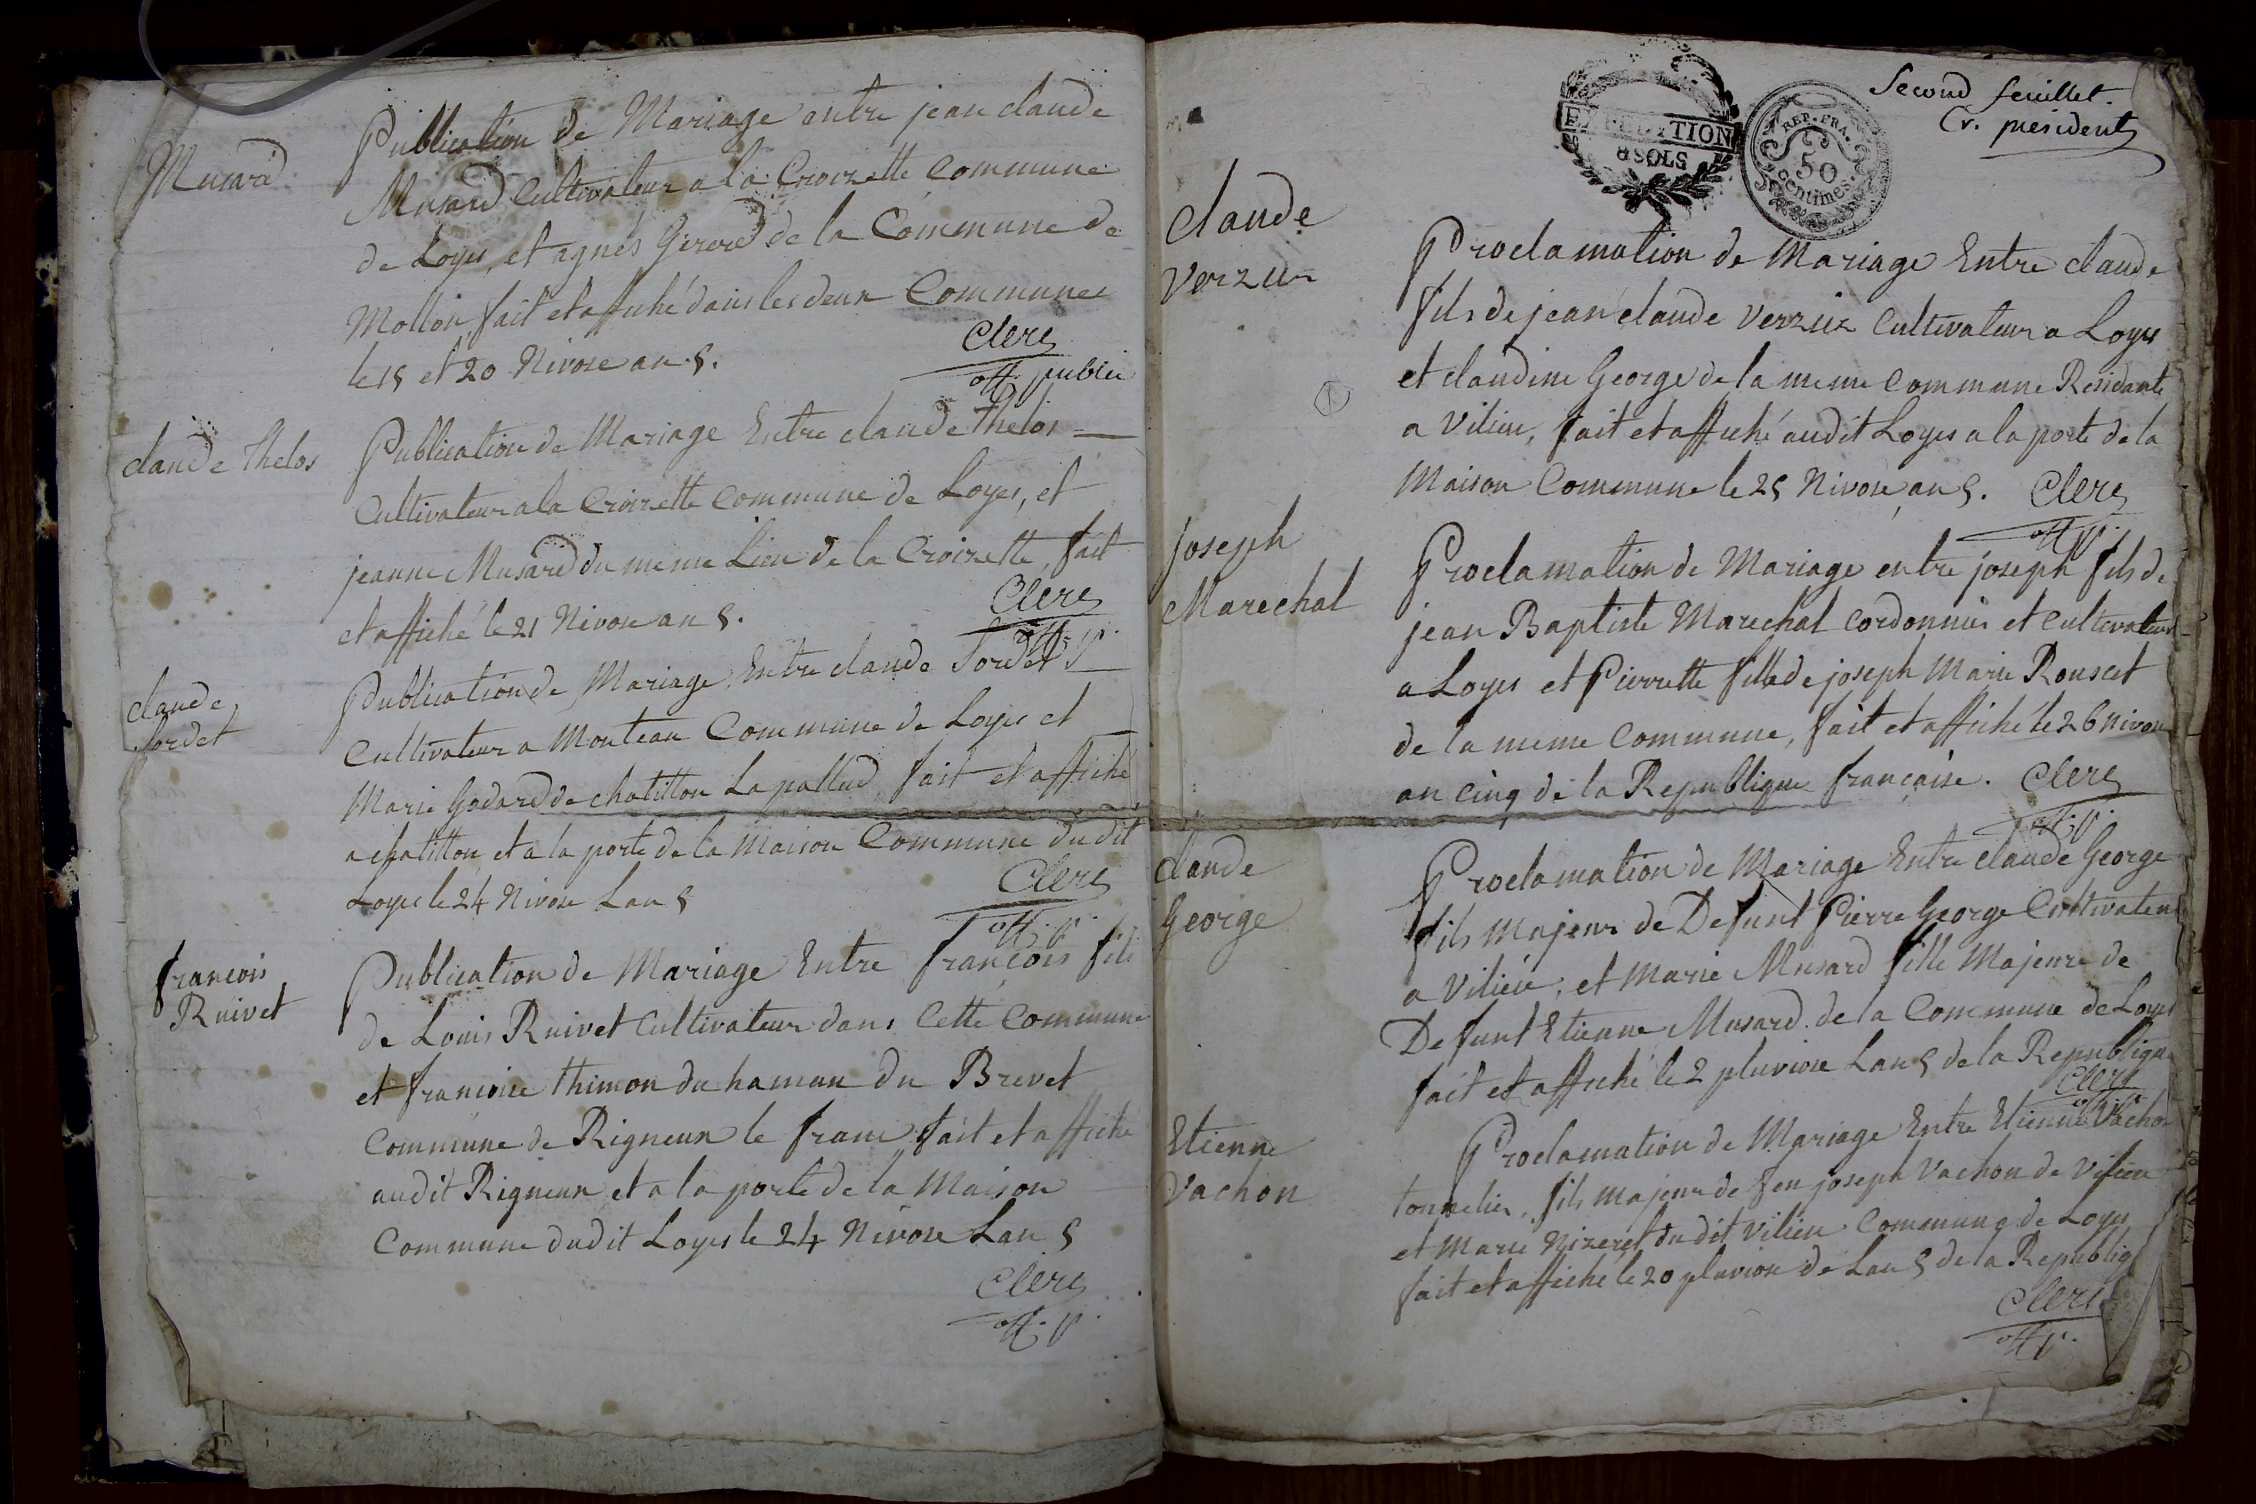 Musard
Publication de Mariage entre jean claude
Musard Cultivateur a la Croizette Commune
de Loyes, et agnes Girard de la Commune de
Mollon, fait et affiché dans les deux Communes
le 15 et 20 Nivose an 5.
Clerc
off. public
claude thelos
Publication de Mariage Entre claude thelos
Cultivateur a la Croizette Commune de Loyes, et
jeanne Musard du meme Lieu de la Croizette, fait
et affiché le 21 Nivose an 5.
Clerc
off. p.
claude
Sordet
Publication de Mariage Entre claude Sordet
Cultivateur a Monteau Commune de Loyes et
Marie Godard de chatillon Lapallud, fait et affiché
a chatillon, et a la porte de la Maison Commune dudit
Loyes le 24 Nivose Lan 5
Clerc
off. p.
francois
Ruivet
Publication de Mariage Entre françois fils
de Louis Ruivet Cultivateur dans Cette Commune
et francoise thimon du hamau du Brevet
Commune de Rigneux le franc fait et affiché
audit Rigneux, et a la porte de la Maison
Commune dudit Loyes le 24 Nivose Lan 5
Clerc
off. p.
Second feuillet.
Cr. president
EXPEDITION
8 SOLS
REP. FRA.
50
centimes.
claude
Verzuz
Proclamation de Mariage Entre claude
fils de jean claude Verzuz Cultivateur a Loyes
et claudine George de la meme Commune Residante
a Vilieu, fait et affiché audit Loyes a la porte de la
Maison Commune le 25 Nivose an 5.
Clerc
off. p.
joseph
Marechal
Proclamation de Mariage entre joseph fils de
jean Baptiste Marechal Cordonnier et Cultivateur
a Loyes et Pierrette fille de joseph Marie Rousset
de la meme Commune, fait et affiché le 26 Nivose
an cinq de la Republique française.
Clerc
off. p.
claude
George
Proclamation de Mariage Entre claude George
fils Majeur de Defunt Pierre George Cultivateur
a Vilieu, et Marie Musard fille Majeure de
Defunt Etienne Musard de la Commune de Loyes
fait et affiché le 2 pluviose Lan 5 de la Republique
Clerc
off. p.
Etienne
Vachon
Proclamation de Mariage Entre Etienne Vachon
tonnelier, fils majeur de feu joseph Vachon de Vilieu
et Marie Nizeret dudit Vilieu Commune de Loyes
fait et affiché le 20 pluviose de Lan 5 de la Republiq
Clerc
off p.